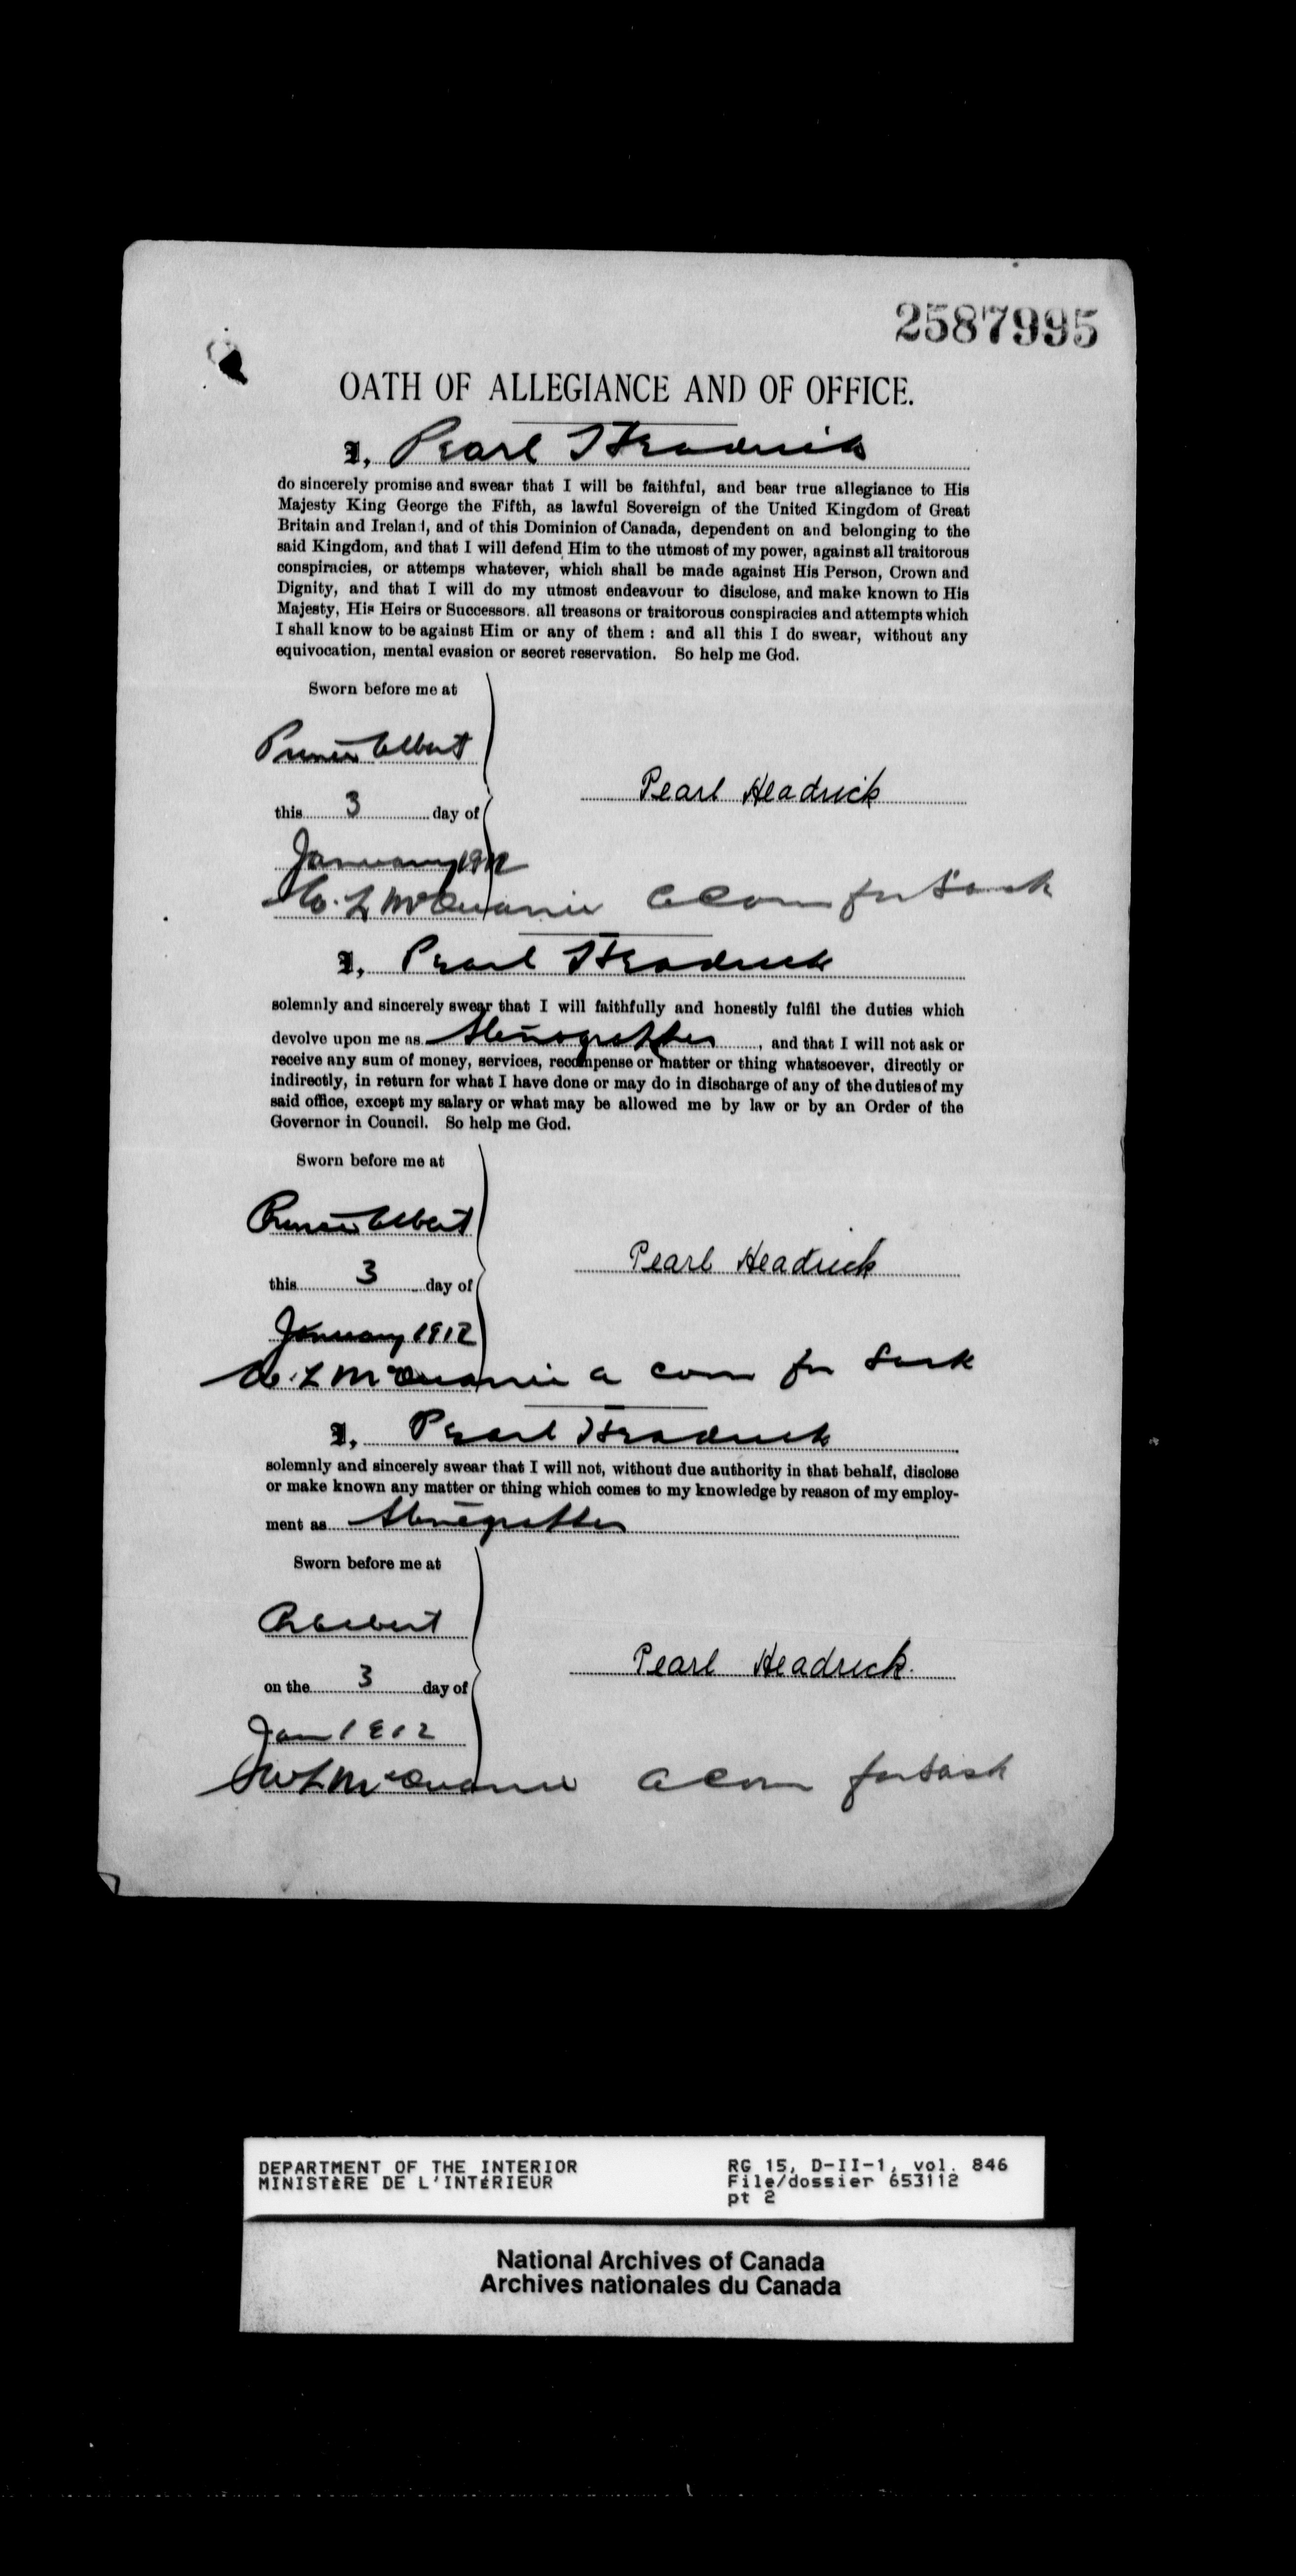 2587995
OATH OF ALLEGIANCE AND OF OFFICE.
I, Pearl Headrick
do sincerely promise and swear that I will be faithful, and bear true allegiance to His
Majesty King George the Fifth, as lawful Sovereign of the United Kingdom of Great
Britain and Ireland, and of this Dominion of Canada, dependent on and belonging to the
said Kingdom, and that I will defend Him to the utmost of my power, against all traitorous
conspiracies, or attemps whatever, which shall be made against His Person, Crown and
Dignity, and that I will do my utmost endeavour to disclose, and make known to His
Majesty, His Heirs or Successors. all treasons or traitorous conspiracies and attempts which
I shall know to be against Him or any of them : and all this I do swear, without any
equivocation, mental evasion or secret reservation. So help me God.
Sworn before me at
Prince Albert
Pearl Headrick
this 3 day of
January 1912
a Com for Sask
I, Pearl Headrick
solemnly and sincerely swear that I will faithfully and honestly fulfil the duties which
devolve upon me as Stenographer, and that I will not ask or
receive any sum of money, services, recompense or matter or thing whatsoever, directly or
indirectly, in return for what I have done or may do in discharge of any of the duties of my
said office, except my salary or what may be allowed me by law or by an Order of the
Governor in Council. So help me God.
Sworn before me at
Prince Albert
Pearl Headrick
this 3 day of
January 1912
a com for Sask
I, Pearl Headrick
solemnly and sincerely swear that I will not, without due authority in that behalf, disclose
or make known any matter or thing which comes to my knowledge by reason of my employ-
ment as Stenographer
Sworn before me at
P Albert
Pearl Headrick.
on the 3 day of
Jan 1912
a Com for Sask
DEPARTMENT OF THE INTERIOR RG 15, D-II-1, vol. 846
MINISTÈRE DE L'INTÉRIEUR File/dossier 653112
pt 2
National Archives of Canada
Archives nationales du Canada